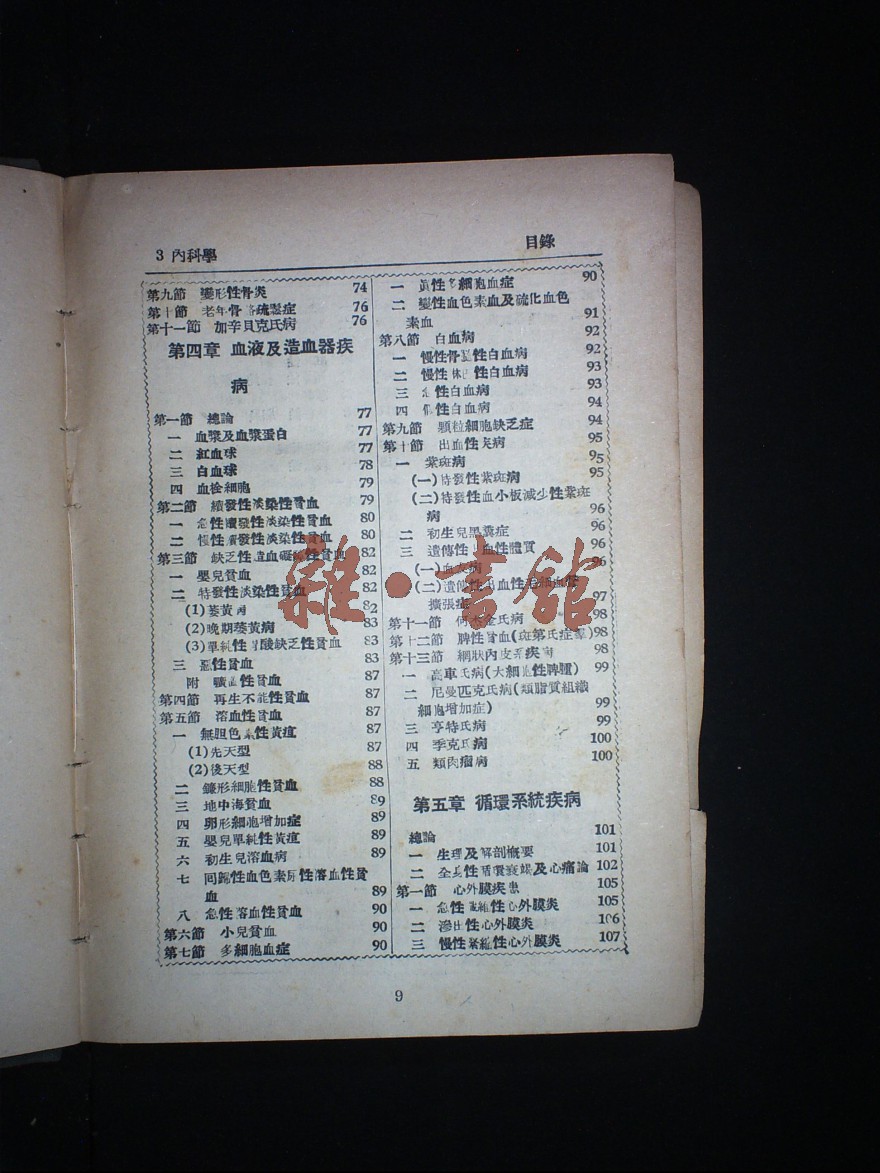 3 內科學
目錄
第九節 變形性骨炎 74
第十節 老年骨骼疏鬆症 76
第十一節 加辛貝克氏病 76
第四章 血液及造血器疾
病
第一節 總論 77
一 血漿及血漿蛋白 77
二 紅血球 77
三 白血球 78
四 血栓細胞 79
第二節 續發性淡染性貧血 79
一 急性續發性淡染性貧血 80
二 慢性續發性淡染性貧血 80
第三節 缺乏性造血礙性貧血 82
一 嬰兒貧血 82
二 特發性淡染性貧血 82
(1)萎黃 82
(2)晚期萎黃病 83
(3)單純性胃酸缺乏性貧血 83
三 惡性貧血 83
附 性貧血 87
第四節 再生不能性貧血 87
第五節 溶血性貧血 87
一 無胆色素性黃疸 87
(1)先天型 87
(2)後天型 88
二 鐮形細胞性貧血 88
三 地中海貧血 89
四 卵形細胞增加症 89
五 嬰兒單純性黃疸 89
六 初生兒溶血病 89
七 陣發性血色素尿性溶血性貧
血 89
八 急性溶血性貧血 90
第六節 小兒貧血 90
第七節 多細胞血症 90
一 真性多細胞血症 90
二 變性血色素血及硫化血色
素血 91
第八節 白血病 92
一 慢性骨髓性白血病 92
二 慢性淋巴性白血病 93
三 急性白血病 93
四 性白血病 94
第九節 顆粒細胞缺乏症 94
第十節 出血性疾病 95
一 紫斑病 95
(一)特發性紫斑病 95
(二)特發性血小板減少性紫斑
病 96
二 初生兒黑糞症 96
三 遺傳性出血性體質 96
(一)血友病 96
(二)遺傳性出血性毛細血管
擴張症 97
第十一節 何杰金氏病 98
第十二節 脾性貧血(班第氏症羣) 98
第十三節 網狀內皮系疾病 98
一 高車氏病(大細胞性脾腫) 99
二 尼曼匹克氏病(類脂質組織
細胞增加症) 99
三 亨特氏病 99
四 季克氏病 100
五 類肉瘤病 100
第五章 循環系統疾病
總論 101
一 生理及解剖概要 101
二 全身性循環衰竭及心痛論 102
第一節 心外膜疾患 105
一 急性纖維性心外膜炎 105
二 滲出性心外膜炎 106
三 慢性緊縮性心外膜炎 107
9
雜·書館